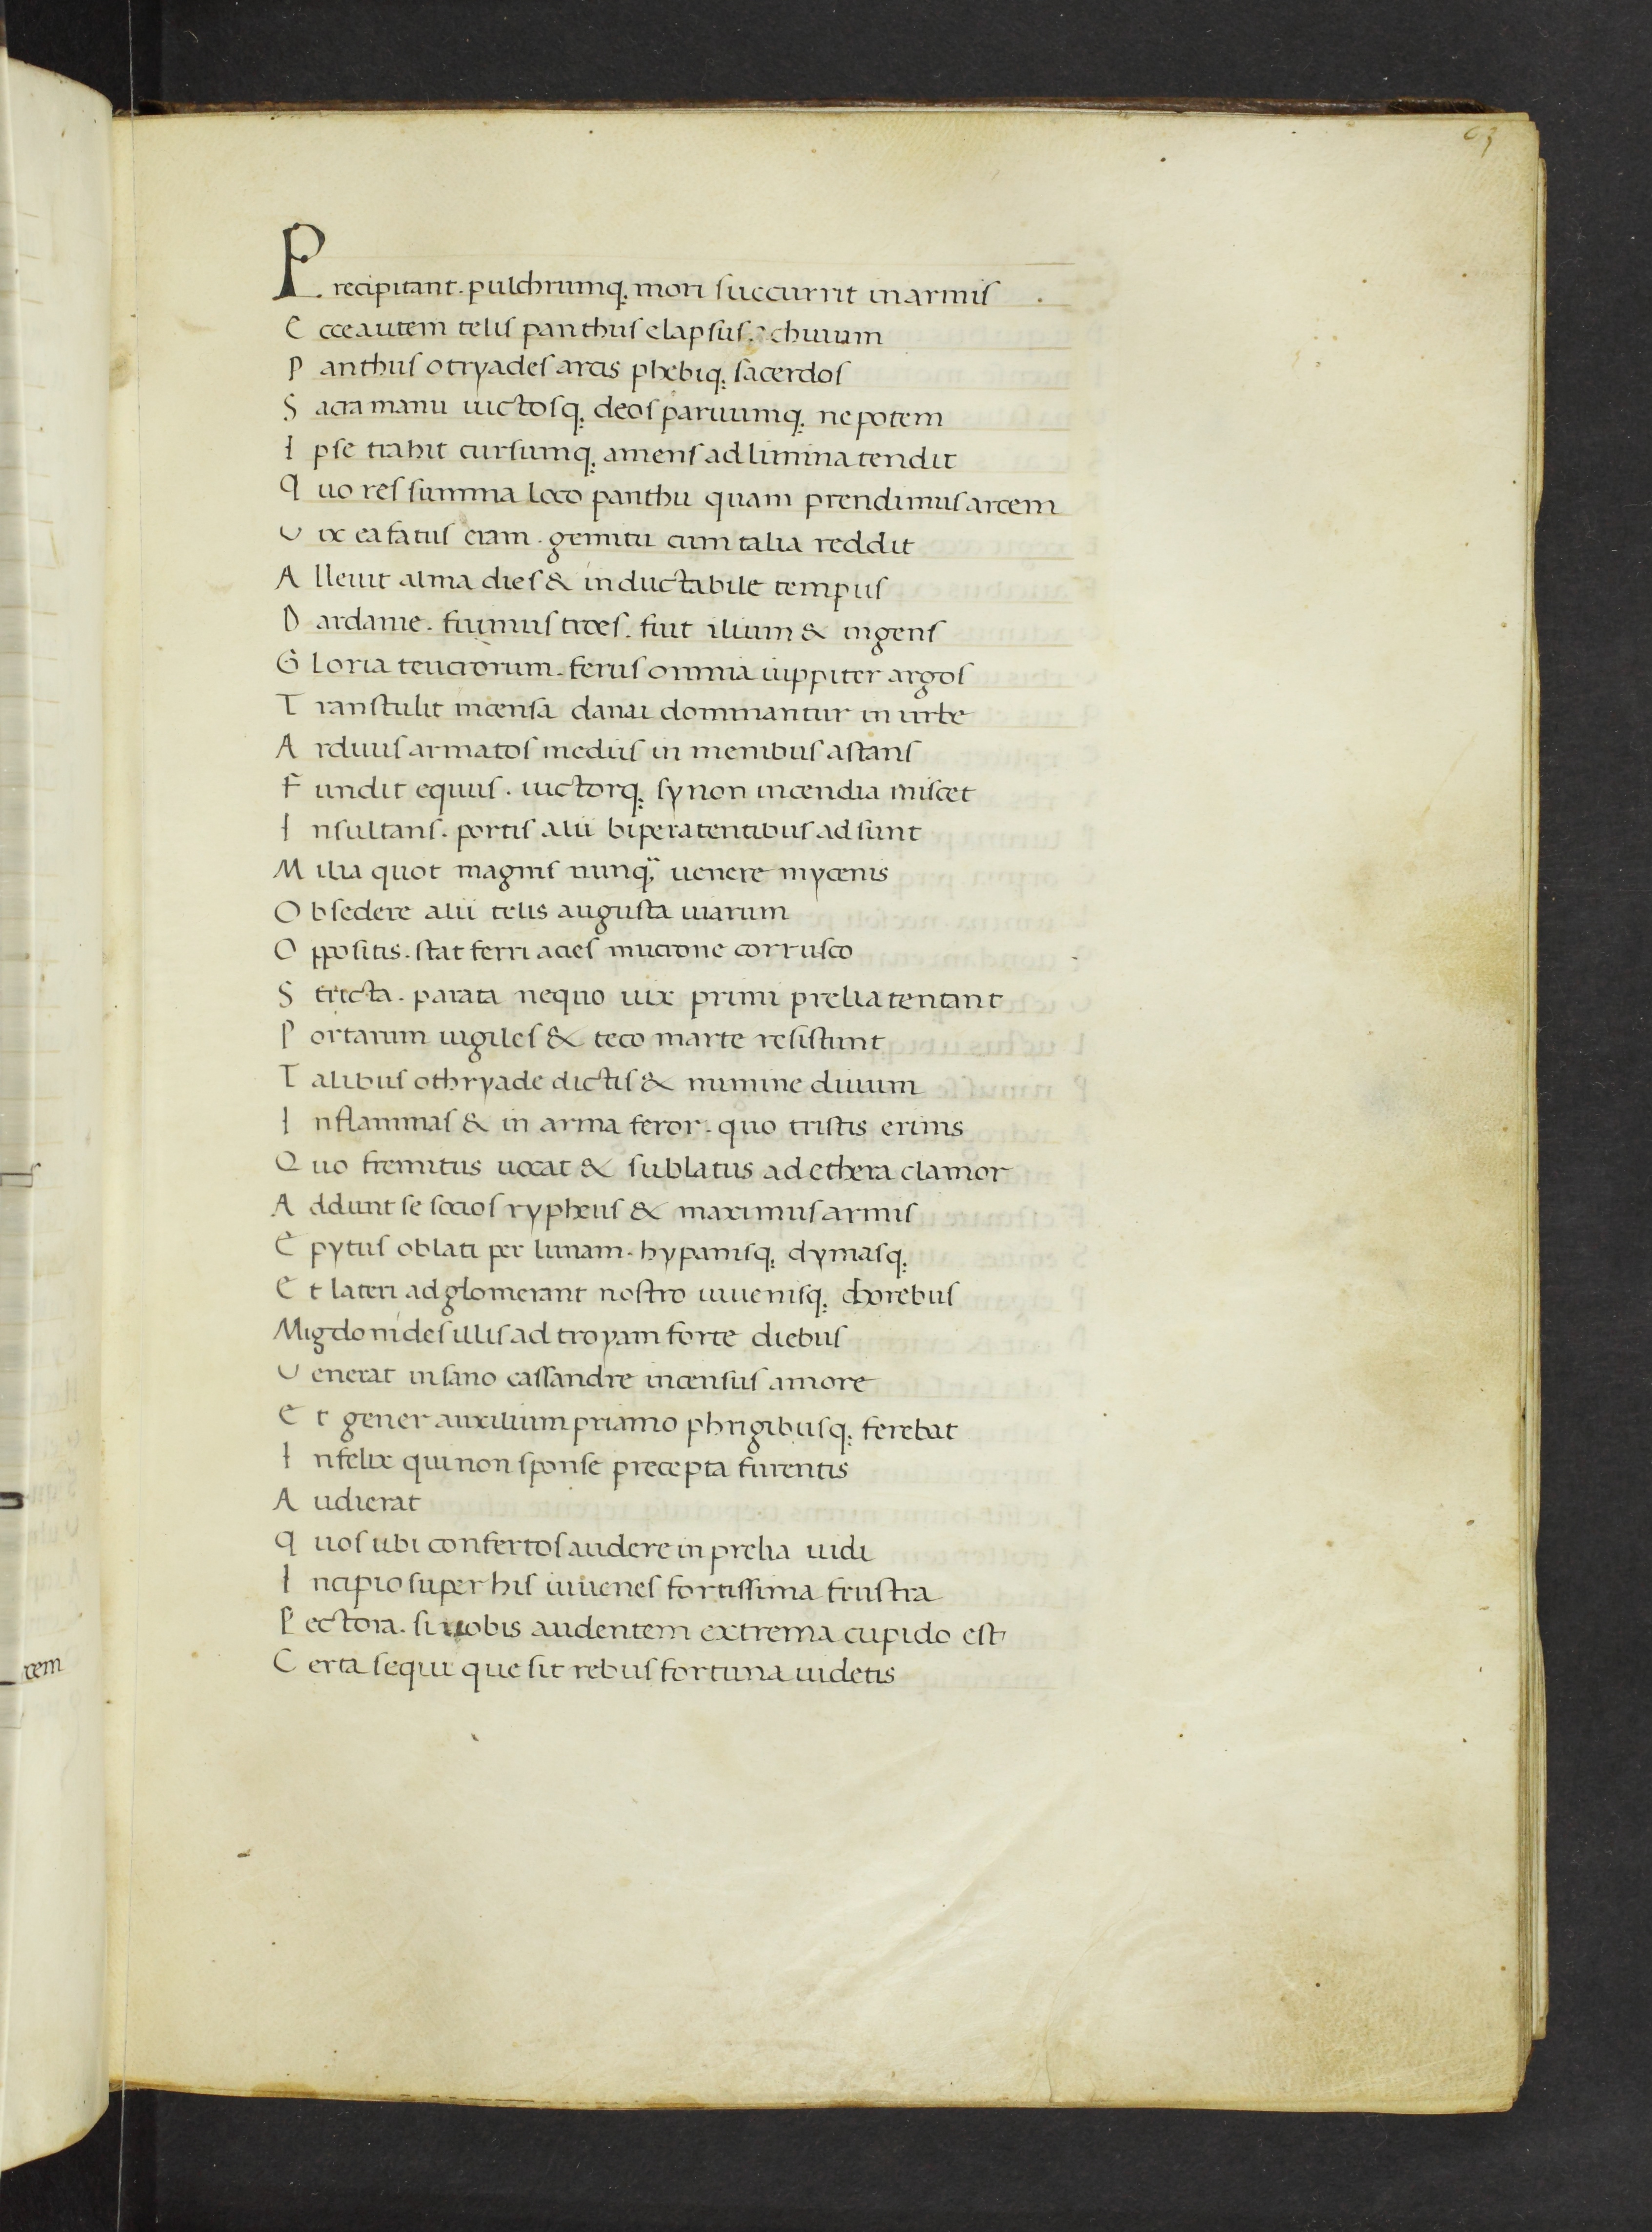 63
Precipitant. pulchrumq; mori succurrit in armis
Ecce autem telis panthus elapsus. achiuum
Panthus otryades arcis phebiq; sacerdos
Sacra manu uictosq; deos paruumq; nepotem
Ipse trahit cursumq; amens ad limina tendit
Quo res summa loco panthu quam prendimus arcem
Vix ea fatus eram. gemitu cum talia reddit
Alleuit alma dies & inductabile tempus
Dardanie. fuimus troes. fuit ilium & ingens
Gloria teucrorum. ferus omnia iuppiter argos
Transtulit incensa danai dominantur in urbe
Arduus armatos mediis in menibus astans
Fundit equus. uictorq; synon incendia miscet
Insultans. portis alii biperatentibus adsunt
Milia quot magnis nunq uenere mycenis
Obsedere alii telis augusta uiarum
Oppositis. stat ferri acies mucrone corrusco
Stricta. parata nequo uix primi prelia tentant
Portarum uigiles & teco marte resistunt
Talibus othryade dictis & numine diuum
In flammas & in arma feror. quo tristis erinis
Quo fremitus uocat & sublatus ad ethera clamor
Addunt se socios rypheus & maximus armis
Epytus oblati per lunam. hypanisq; dymasq;
Et lateri adglomerant nostro iuuenisq; chorebus
Migdonides illis ad troyam forte diebus
Venerat insano cassandre incensus amore
Et gener auxilium priamo phrigibusq; ferebat
Infelix qui non sponse precepta furentis
Audierat
Quos ubi confertos audere in prelia uidi
Incipio super his iuuenes fortissima frustra
Pectora. si uobis audentem extrema cupido est
Certa sequi que sit rebus fortuna uidetis